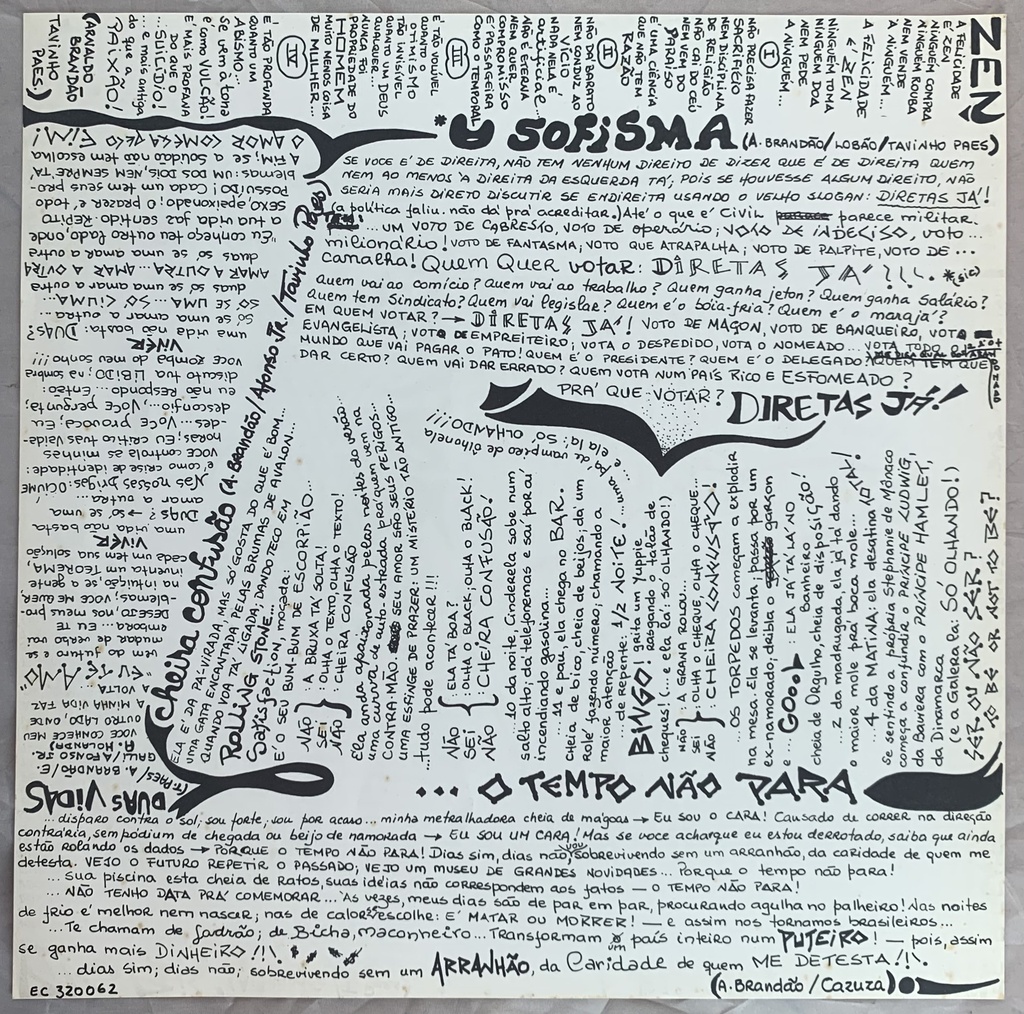 ZEN
A FELICIDADE
É ZEN
NINGUEM COMPRA
NINGUEM ROUBA
NEM VENDE
A NINGUEM...
A FELICIDADE
É ZEN
NINGUEM TOMA
NINGUEM DOA
NEM PEDE
A NINGUEM...
I
NÃO PRECISA FAZER
SACRIFICIO
NEM DISCIPLINA
DE RELIGIÃO
NÃO CAI DO CEU
NEM VEM DO
PARAISO
É UMA CIÊNCIA
QUE NÃO TEM
RAZÃO
II
NÃO DA BARATO
NEM CONDUZ AO
VICIO
NADA NELA É
artificial...
NÃO É ETERNA
NEM QUER
COMPROMISSO
É PASSAGEIRA
COMO O TEMPORAL
III
É TÃO VOLÚVEL
QUANTO O
OTIMISMO
TÃO INVISÍVEL
QUANTO UM DEUS
QUALQUER...
NUNCA FOI
PROPRIEDADE DO
HOMEM
MUITO MENOS COISA
DE MULHER...
IV
É TÃO PROFUNDA
QUANTO UM
ABISMO...
Se vem à tona
é como VULCÃO!
E MAIS PROFANA
DO QUE O
SUICÍDIO!
... e mais antiga
do que a
PAIXÃO!
(ARNALDO
BRANDÃO
TAVINHO
PAES)
* O SOFISMA (A. BRANDÃO/LOBÃO/TAVINHO PAES)
SE VOCE É DE DIREITA, NÃO TEM NENHUM DIREITO DE DIZER QUE É DE DIREITA QUEM
NEM AO MENOS À DIREITA DA ESQUERDA TÁ, POIS SE HOUVESSE ALGUM DIREITO, NÃO
SERIA MAIS DIRETO DISCUTIR SE ENDIREITA USANDO O VELHO SLOGAN: DIRETAS JÁ!
(a política faliu. não dá prá acreditar.) Até o que é Civil parece militar.
... UM VOTO DE CABRESTO, VOTO DE OPERÁRIO; VOTO DE INDECISO, VOTO...
milionário! VOTO DE FANTASMA; VOTO QUE ATRAPALHA; VOTO DE PALPITE, VOTO DE ...
Canalha! Quem Quer votar: DIRETAS JÁ?!!. *(sic)
Quem vai ao comício? Quem vai ao trabalho? Quem ganha jeton? Quem ganha salário?
Quem tem Sindicato? Quem vai legislar? Quem é o bóia-fria? Quem é o marajá?
EM QUEM VOTAR? → DIRETAS JÁ! VOTO DE MAÇON, VOTO DE BANQUEIRO, VOTO
EVANGELISTA; VOTO DE EMPREITEIRO; VOTA O DESPEDIDO, VOTA O NOMEADO... VOTA TODO O
MUNDO QUE VAI PAGAR O PATO! QUEM É O PRESIDENTE? QUEM É O DELEGADO? QUEM TEM QUE
DAR CERTO? QUEM VAI DAR ERRADO? QUEM VOTA NUM PAÍS RICO E ESFOMEADO?
PRÁ QUE VOTAR? DIRETAS JÁ!
Cheira Confusão (A. Brandão/Afonso Jr./Tavinho Paes)
ELA É DA PÁ-VIRADA, MAS SÓ GOSTA DO QUE É BOM...
UMA GATA ENCANTADA PELAS BRUMAS DE AVALON...
QUANDO VOA TÁ LIGADA, DANDO TECO EM
Rolling STONE...
Satisfaction, moçada:
E O SEU BUM-BUM DE ESCORPIÃO...
NÃO } : A BRUXA TÁ SOLTA!
SEI } : OLHA O TEXTO, OLHA O TEXTO!
NÃO } : CHEIRA CONFUSÃO
Ela anda apaixonada pelas noites do verão...
uma curva de auto-estrada prá quem vem na
CONTRAMÃO. SEU AMOR SÃO SEUS PERIGOS...
UMA ESFINGE DE PRAZER: UM MISTÉRIO TÃO ANTIGO
...tudo pode acontecer!!!
NÃO } : ELA TÁ BOA?
SEI } : OLHA O BLACK; OLHA O BLACK!
NÃO } : CHEIRA CONFUSÃO!
... 10 da noite, Cinderela sobe num
salto alto; dá telefonemas e sai por aí
incendiando gasolina...
... 11 e pau, ela chega no BAR.
cheia de bico, cheia de beijos; dá um
Rolé fazendo número; chamando a
maior atenção...
... de repente: 1/2 NOITE!
BINGO! grita um Yuppie
Rasgando o talão de
cheques! (... e ela lá: só OLHANDO!)
NÃO } : A GRANA ROLOU...
SEI } : OLHA O CHEQUE, OLHA O CHEQUE...
NÃO } : CHEIRA CONFUSÃO!
... OS TORPEDOS começam a explodir
na mesa. Ela se levanta; passa por um
ex-namorado; dribla o garçon
e... GOOOL ▶ : ELA JÁ TÁ LÁ NO
Banheiro
cheia de Orgulho, cheia de disposição!
... 2 da madrugada, ela já tá dando
o maior mole prá boca mole...
... 4 da MATINA: ela desatina
se sentindo a própria Stephanie de Mônaco
começa a confundir o PRÍNCIPE LUDWIG,
da Baviera com o PRÍNCIPE HAMLET,
da Dinamarca
(e a Galera lá: SÓ OLHANDO!)
SER OU NÃO SER?
TO BE OR NOT TO BE?
DUAS VIDAS
(T. PAES/A. BRANDÃO/E.
GALLI/AFONSO JR.
A. HOLANDA)
VOCE CONHECE MEU
OUTRO LADO, ONDE
A MINHA VIDA FAZ
A VOLTA
"EU TE AMO"
vem do futuro e se
mudar de verso vai
embora... EU TE
DESEJO, nos meus pro-
blemas; VOCE ME QUER,
na intuição, se a gente
inventa um TEOREMA,
cada um tem sua solução
VIVER
uma vida não basta
DUAS? → só se uma
amar a outra...
Nas nossas brigas: OCIUME
é como crise de identidade:
voce controla as minhas
horas; EU critico tuas vaida-
des... VOCE provoca, EU
desconfio... VOCE pergunta;
eu não Respondo... Então:
discuto tua LIBIDO; na sombra
voce zomba do meu sonho!!!
VIVER
uma vida não basta: DUAS?
só se uma amar a outra...
SÓ SE UMA... SÓ CIUMA...
duas só se uma amar a outra
AMAR A OUTRA... AMAR A OUTRA
duas só se uma amar a outra
"Eu conheço teu outro lado, onde
a tua vida faz sentido: REPITO
SEXO, apaixonado; O prazer, e todo
POSSUIDO! Cada um tem seus pro-
blemas: UM DOS DOIS, NEM SEMPRE TÁ
AFIM; se a solidão não tem escolha
O AMOR COMEÇA PELO FIM!
... O TEMPO NÃO PARA
... disparo contra o sol; sou forte, sou por acaso... minha metralhadora cheia de magoas → Eu sou o CARA! Cansado de CORRER na direção
contrária, sem pódium de chegada ou beijo de namorada → EU SOU UM CARA! Mas se voce achar que eu estou derrotado, saiba que ainda
estão rolando os dados → PORQUE O TEMPO NÃO PARA! Dias sim, dias não, vou sobrevivendo sem um arranhão, da caridade de quem me
detesta. VEJO O FUTURO REPETIR O PASSADO; VEJO UM MUSEU DE GRANDES NOVIDADES... Porque o tempo não para!
... Sua piscina esta cheia de Ratos, suas idéias não correspondem aos fatos — O TEMPO NÃO PARA!
... NÃO TENHO DATA PRÁ COMEMORAR... ÀS VEZES, meus dias são de par em par, procurando agulha no palheiro! Nas noites
de frio é melhor nem nascer; nas de calor se escolhe: É MATAR OU MORRER! — e assim nos tornamos brasileiros...
... Te chamam de ladrão; de Bicha, maconheiro... Transformam um país inteiro num PUTEIRO! — pois, assim
se ganha mais DINHEIRO!!!.
... dias sim; dias não; sobrevivendo sem um ARRANHÃO, da Caridade de quem ME DETESTA!!!.
(A. Brandão / Cazuza)
EC 320062